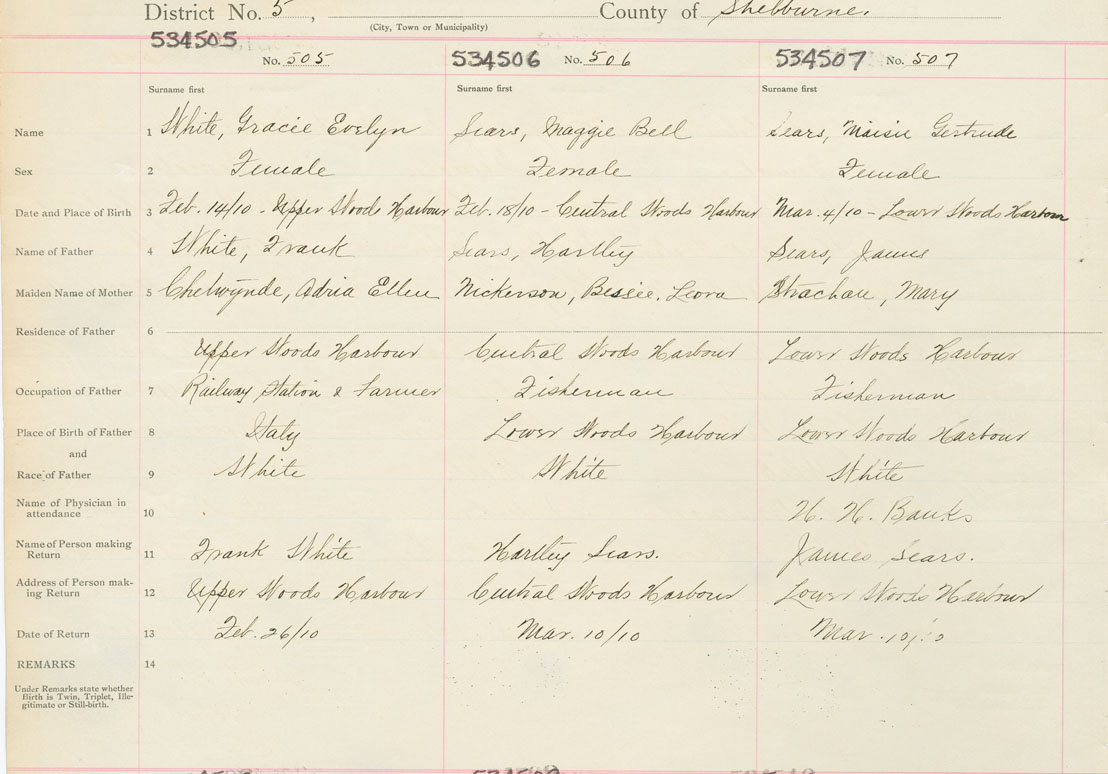 District No. 5, County of Shelburne.
(City, Town or Municipality)
534505
No. 505 534506 No. 506 534507 No. 507
Surname first Surname first Surname first
Name 1 White, Gracie Evelyn Sears, Maggie Bell Sears, Maisie Gertrude
Sex 2 Female Female Female
Date and Place of Birth 3 Feb. 14/10 - Upper Woods Harbour Feb. 18/10 - Central Woods Harbour Mar. 4/10 - Lower Woods Harbour
Name of Father 4 White, Frank Sears, Hartley Sears, James
Maiden Name of Mother 5 Chetwynde, Adria Ellen Nickerson, Bessie. Leora Strachan, Mary
Residence of Father 6
Upper Woods Harbour Central Woods Harbour Lower Woods Harbour
Occupation of Father 7 Railway Station & Farmer Fisherman Fisherman
Place of Birth of Father 8 Italy Lower Woods Harbour Lower Woods Harbour
and
Race of Father 9 White White White
Name of Physician in
attendance 10 H. H. Banks
Name of Person making
Return 11 Frank White Hartley Sears. James Sears.
Address of Person mak-
ing Return 12 Upper Woods Harbour Central Woods Harbour Lower Woods Harbour
Date of Return 13 Feb. 26/10 Mar. 10/10 Mar. 10/10
REMARKS 14
Under Remarks state whether
Birth is Twin, Triplet, Ille-
gitimate or Still-birth.